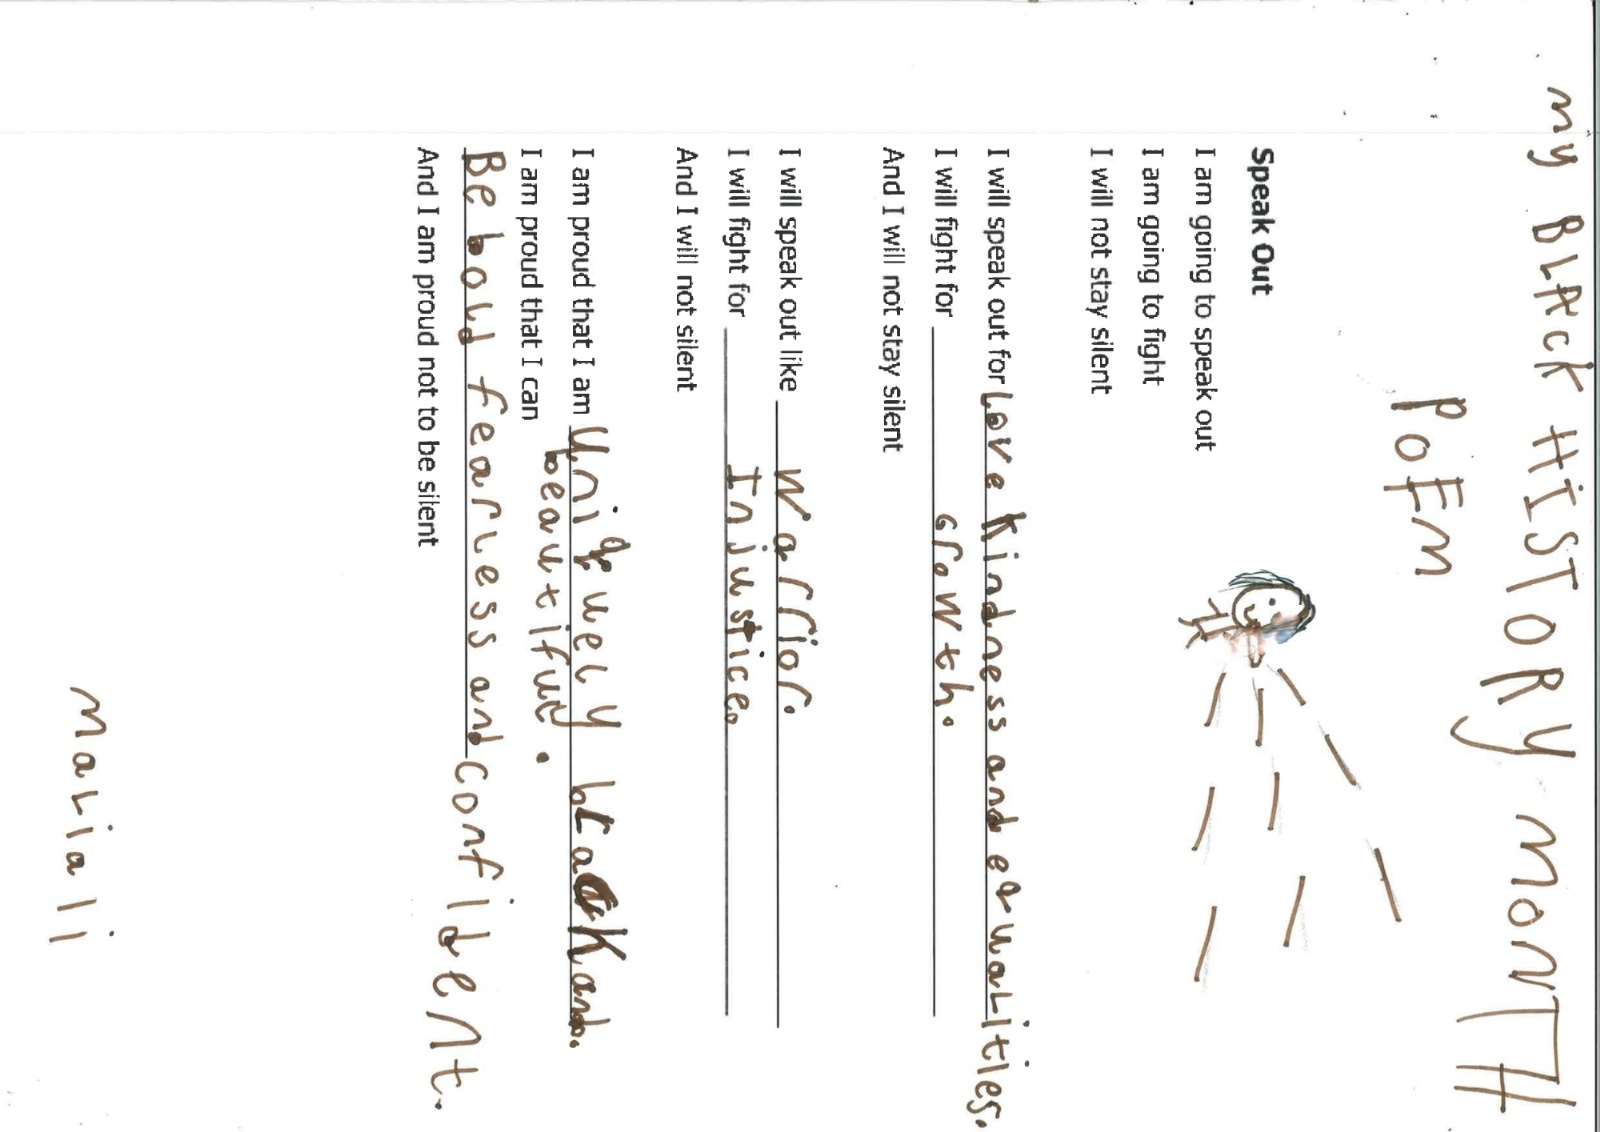 my BLACK HISTORY MONTH
POEM
Speak Out
I am going to speak out
I am going to fight
I will not stay silent
I will speak out for Love kindness and equalities.
I will fight for Growth.
And I will not stay silent
I will speak out like Warrior.
I will fight for Injustice.
And I will not silent
I am proud that I am Uniquely bLack and.
beautiful.
I am proud that I can
Be bold fearless and confident.
And I am proud not to be silent